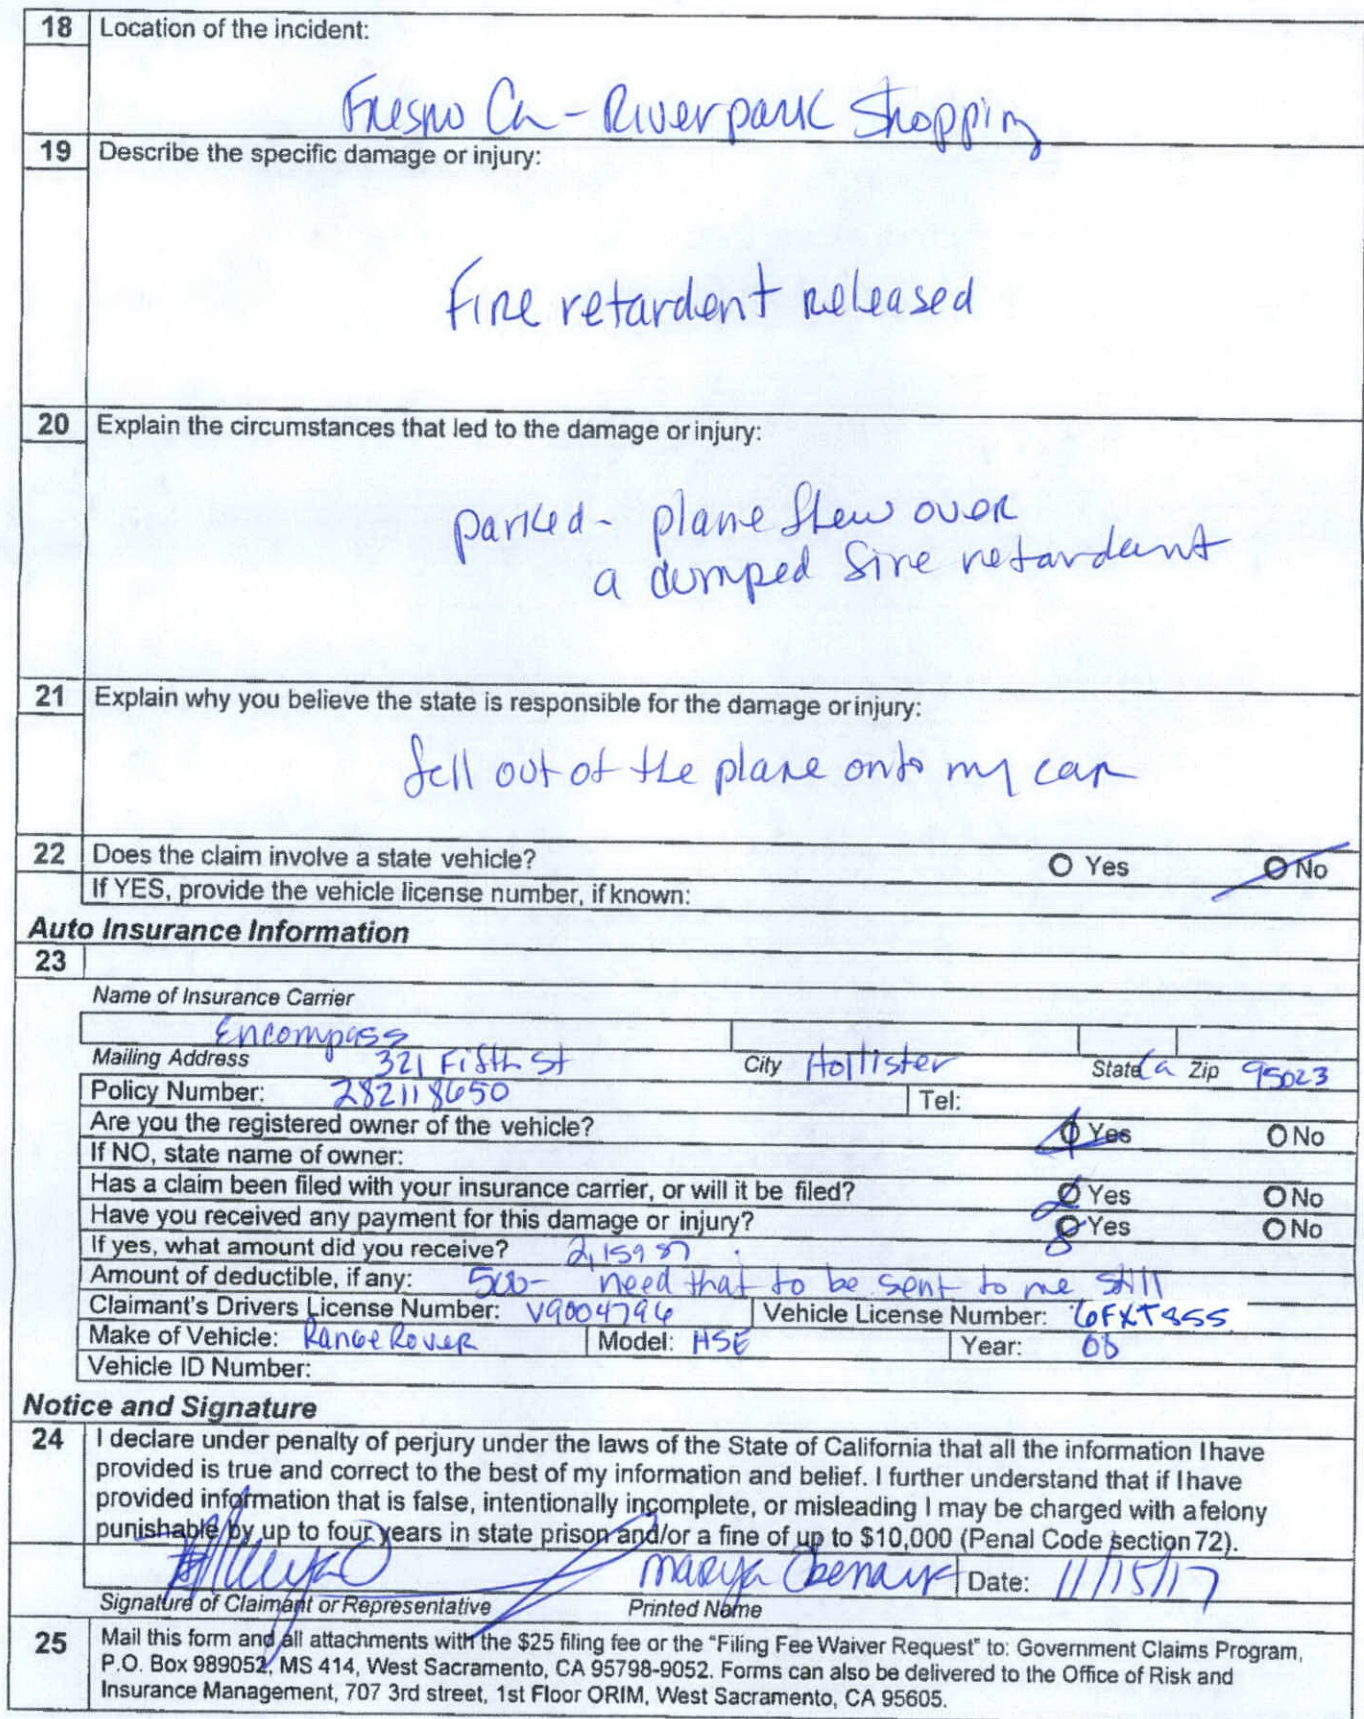 18 Location of the incident:
Fresno Ca - Riverpark Shopping
19 Describe the specific damage or injury:
Fire retardent released
20 Explain the circumstances that led to the damage or injury:
parked - plane flew over
a dumped fire retardant
21 Explain why you believe the state is responsible for the damage or injury:
fell out of the plane onto my car
22 Does the claim involve a state vehicle? O Yes O No
If YES, provide the vehicle license number, if known:
Auto Insurance Information
23
Name of Insurance Carrier
Encompass
Mailing Address 321 Fifth St City Hollister State Ca Zip 95023
Policy Number: 282118650 Tel:
Are you the registered owner of the vehicle? O Yes O No
If NO, state name of owner:
Has a claim been filed with your insurance carrier, or will it be filed? O Yes O No
Have you received any payment for this damage or injury? O Yes O No
If yes, what amount did you receive?
Amount of deductible, if any: 500- need that to be sent to me still
Claimant's Drivers License Number: V9004796 Vehicle License Number: 6FXT855
Make of Vehicle: Range Rover Model: HSE Year:
Vehicle ID Number:
Notice and Signature
24 I declare under penalty of perjury under the laws of the State of California that all the information I have
provided is true and correct to the best of my information and belief. I further understand that if I have
provided information that is false, intentionally incomplete, or misleading I may be charged with a felony
punishable by up to four years in state prison and/or a fine of up to $10,000 (Penal Code section 72).
Marya Date: 11/15/17
Signature of Claimant or Representative Printed Name
25 Mail this form and all attachments with the $25 filing fee or the "Filing Fee Waiver Request" to: Government Claims Program,
P.O. Box 989052, MS 414, West Sacramento, CA 95798-9052. Forms can also be delivered to the Office of Risk and
Insurance Management, 707 3rd street, 1st Floor ORIM, West Sacramento, CA 95605.